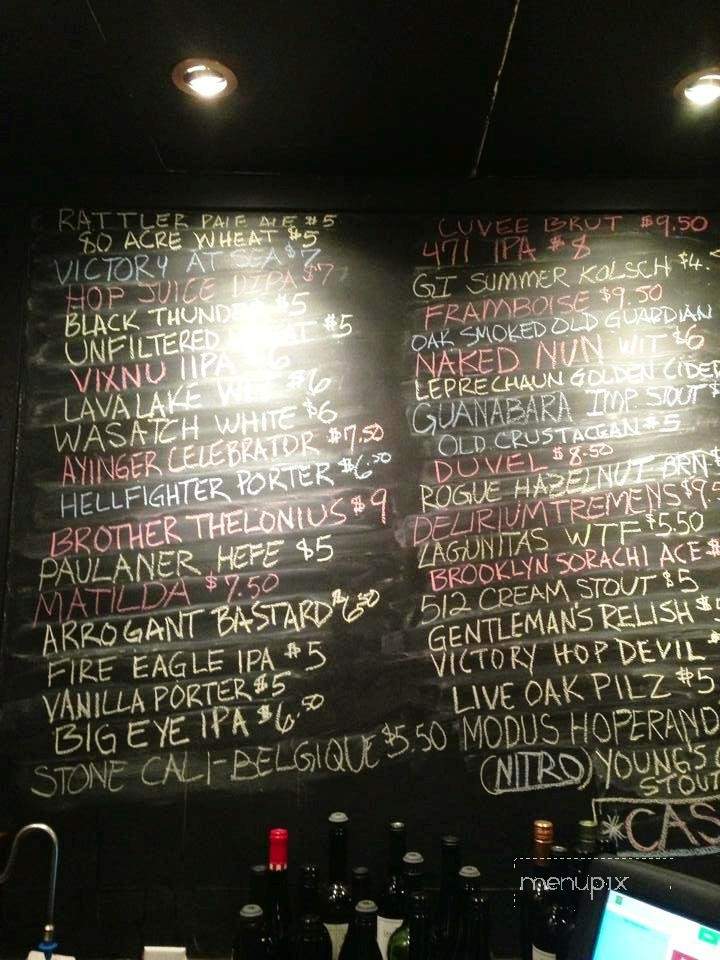 RATTLER PALE ALE $5
80 ACRE WHEAT $5
VICTORY AT SEA $7
HOP JUICE IIPA $7
BLACK THUNDER $5
UNFILTERED WHEAT $5
VIXNU IIPA $6
LAVA LAKE WIT $6
WASATCH WHITE $6
AYINGER CELEBRATOR $7.50
HELLFIGHTER PORTER $6.50
BROTHER THELONIUS $9
PAULANER HEFE $5
MATILDA $7.50
ARROGANT BASTARD $6.50
FIRE EAGLE IPA $5
VANILLA PORTER $5
BIG EYE IPA $6.50
STONE CALI-BELGIQUE $5.50
CUVEE BRUT $9.50
471 IPA $8
GI SUMMER KOLSCH $4.
FRAMBOISE $9.50
OAK SMOKED OLD GUARDIAN
NAKED NUN WIT $6
LEPRECHAUN GOLDEN CIDER
GUANABARA IMP. STOUT $
OLD CRUSTACEAN $5
DUVEL $8.50
ROGUE HAZELNUT BRN $
DELIRIUM TREMENS $9.5
LAGUNITAS WTF $5.50
BROOKLYN SORACHI ACE $
512 CREAM STOUT $5
GENTLEMAN'S RELISH $
VICTORY HOP DEVIL $
LIVE OAK PILZ $5
MODUS HOPERAND
(NITRO) YOUNG'S
STOUT
*CAS
menupix